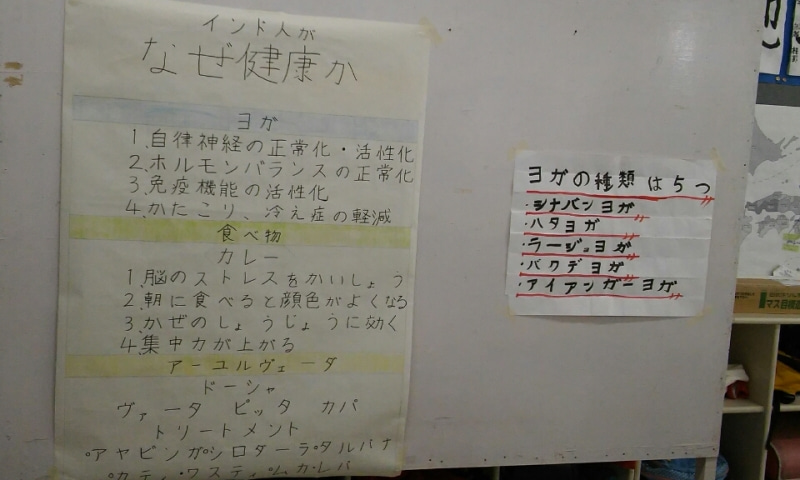 インド人が
なぜ健康か
ヨガ
1.自律神経の正常化・活性化
2.ホルモンバランスの正常化
3.免疫機能の活性化
4.かたこり、冷え症の軽減
食べ物
カレー
1.脳のストレスをかいしょう
2.朝に食べると顔色がよくなる
3.かぜのしょうじょうに効く
4.集中力が上がる
アーユルヴェーダ
ドーシャ
ヴァータ ピッタ カパ
トリートメント
アヤビンガ シロダーラ タルパナ
ヨガの種類は5つ
・シナバンヨガ
・ハタヨガ
・ラージョヨガ
・バクデヨガ
・アイアンガーヨガ